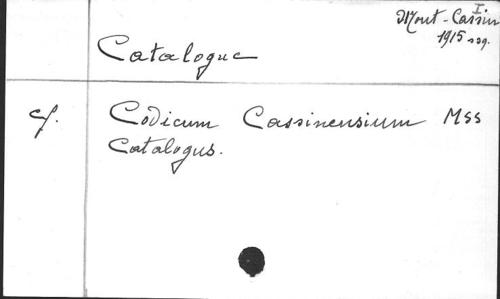 I
Mont-Cassin
1915 sqq.
Catalogue
cf.
Codicum Cassinensium MSS
Catalogus.